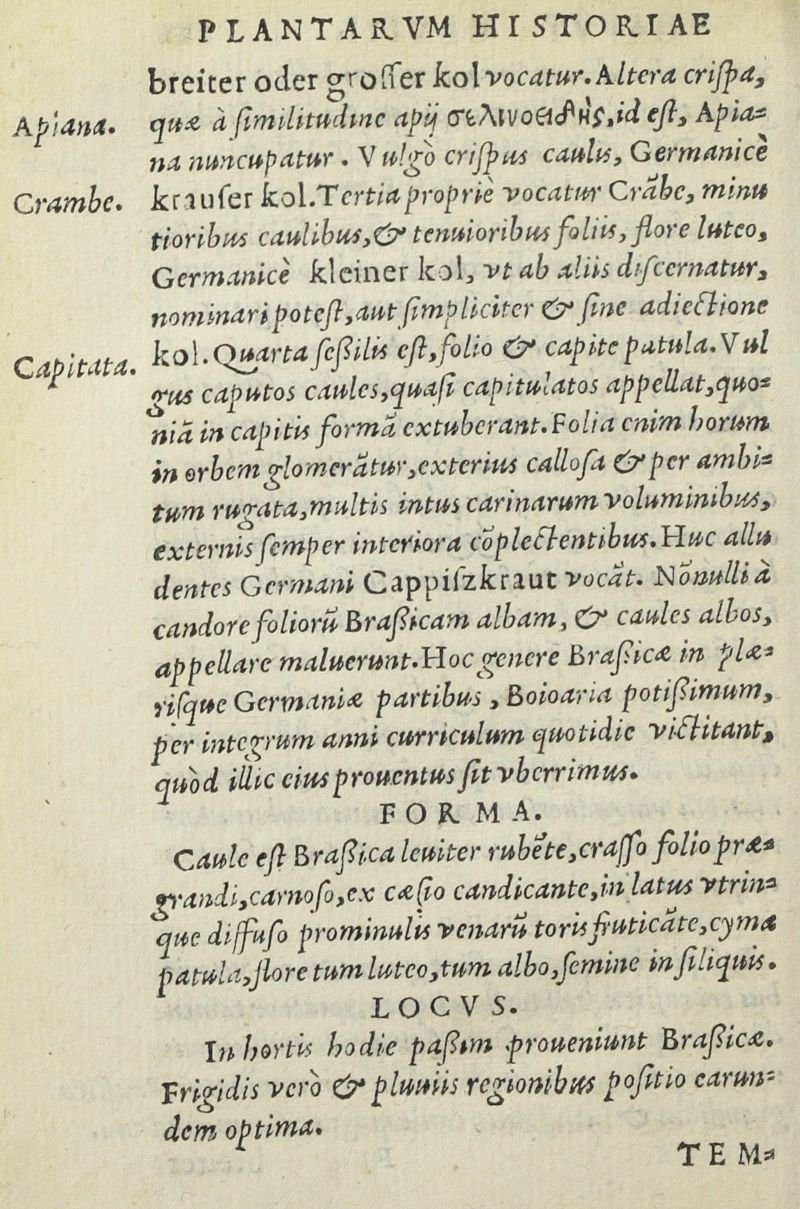 PLANTARVM HISTORIAE
breiter oder groſſer kol vocatur. Altera criſpa,
Apiana.
quæ à ſimilitudine apij σελινοειδὴς, id eſt, Apia-
na nuncupatur. Vulgò criſpus caulis, Germanicè
Crambe.
krauſer kol. Tertia propriè vocatur Crãbe, minu
tioribus caulibus, & tenuioribus foliis, flore luteo,
Germanicè kleiner kol, vt ab aliis diſcernatur,
nominari poteſt, aut ſimpliciter & ſine adiectione
Capitata.
kol. Quarta ſeßilis eſt, folio & capite patula. Vul
gus caputos caules, quaſi capitulatos appellat, quo-
niã in capitis formã extuberant. Folia enim horum
in orbem glomerãtur, exterius calloſa & per ambi-
tum rugata, multis intus carinarum voluminibus,
externis ſemper interiora cõplectentibus. Huc allu
dentes Germani Cappiſzkraut vocãt. Nõnulli à
candore foliorũ Braßicam albam, & caules albos,
appellare maluerunt. Hoc genere Braßicæ in plæ-
riſque Germaniæ partibus, Boioaria potißimum,
per integrum anni curriculum quotidie victitant,
quòd illic eius prouentus ſit vberrimus.
FORMA.
Caule eſt Braßica leuiter rubẽte, craſſo folio præ-
grandi, carnoſo, ex cæſio candicante, in latus vtrin-
que diffuſo prominulis venarũ toris fruticãte, cyma
patula, flore tum luteo, tum albo, ſemine in ſiliquis.
LOCVS.
In hortis hodie paßim proueniunt Braßicæ.
Frigidis verò & pluuiis regionibus poſitio earun-
dem optima.
TEM-